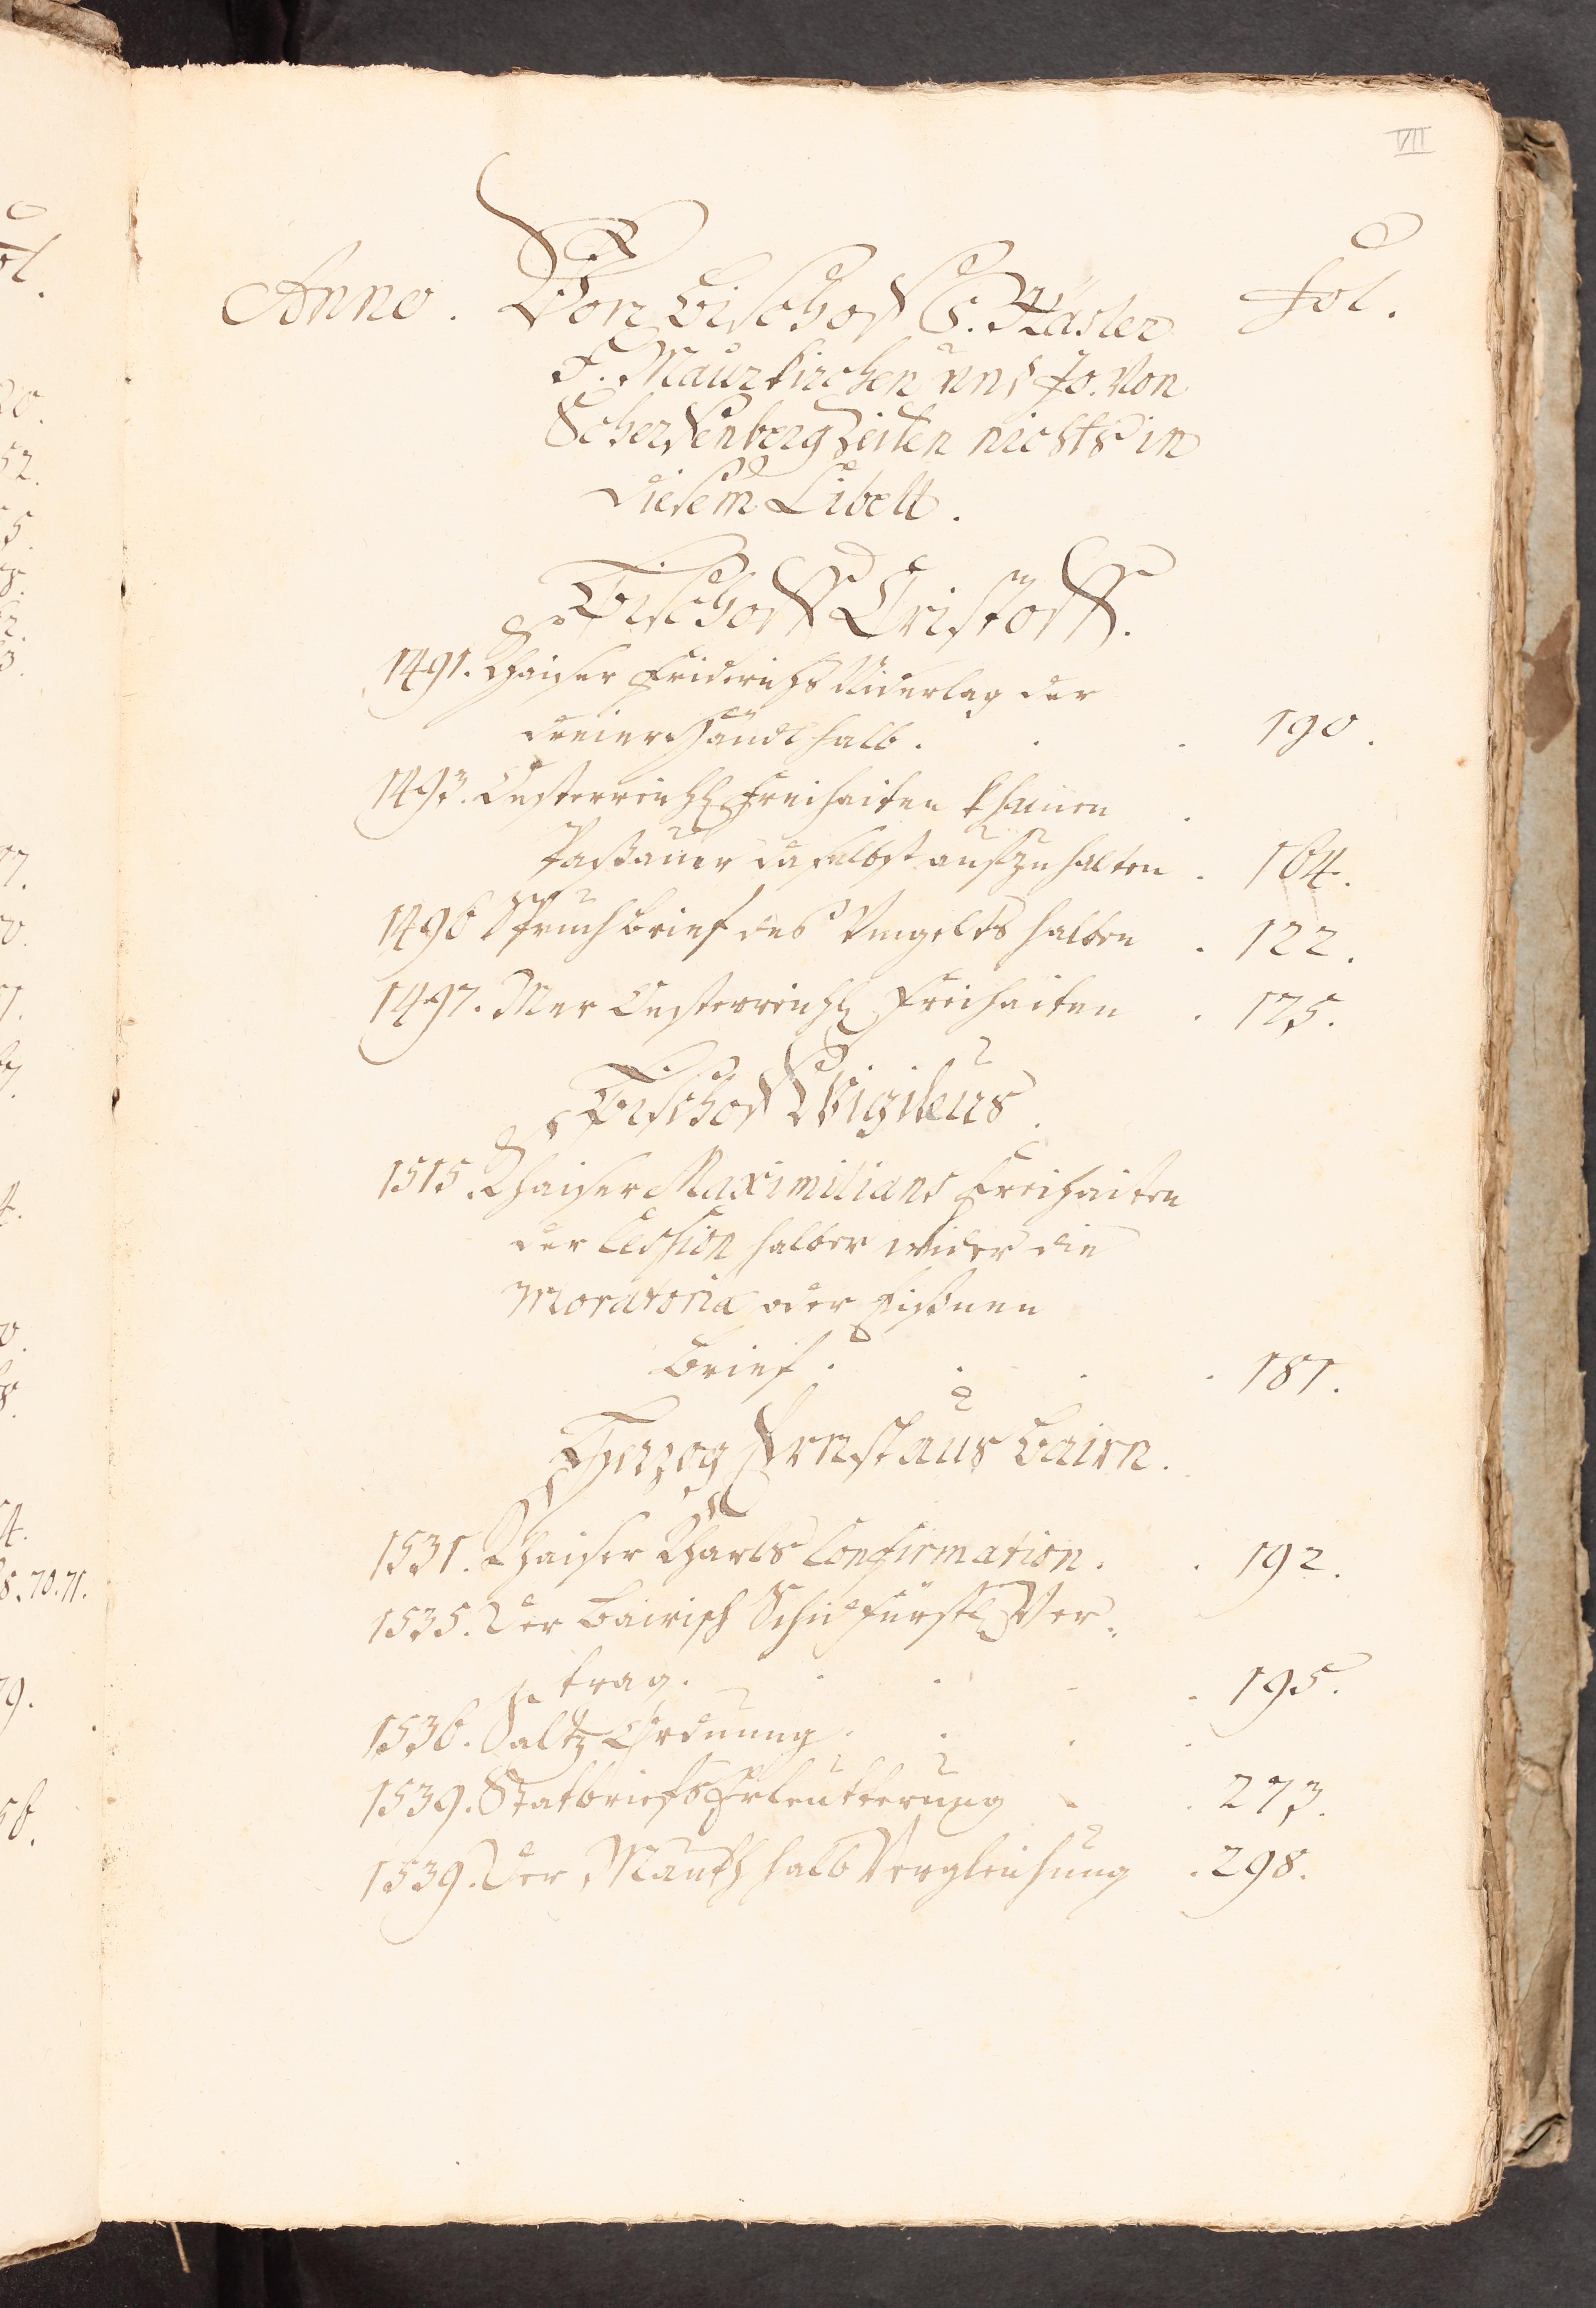 VII
Anno. Von Bischof G. Häsler fol.
F. Maurkirchen und Jo. Von
Scherfenberg Zeiten nichts in
diesem Libell.
Bischoff Cristoff.
1491. Khaiser Friderichs Niderlag der
dreier Händl halb. 190.
1493. Oesterreichl Freihaiten khainen
Paßauer daselbst aufzuhalten. 164.
1496 Spruchbrief des Ungelts halben. 122.
1497. Mer Oesterreichl Freihaiten. 175.
Bischof Wigileus.
1515. Khaiser Maximilians Freihaiten
der Cession halber wider die
Moratoria oder Eißnen
Brief. 181.
Herzog Ernst aus Bairn.
1531. Khaiser Kharls Confirmation. 192.
1535. Der Bairisch Schidfürstl Ver-
trag. 195.
1536. Saltz Ordnung.
1539. Statbriefs Erleutterung 273.
1539. Der Mauth halb Vergleichung. 298.